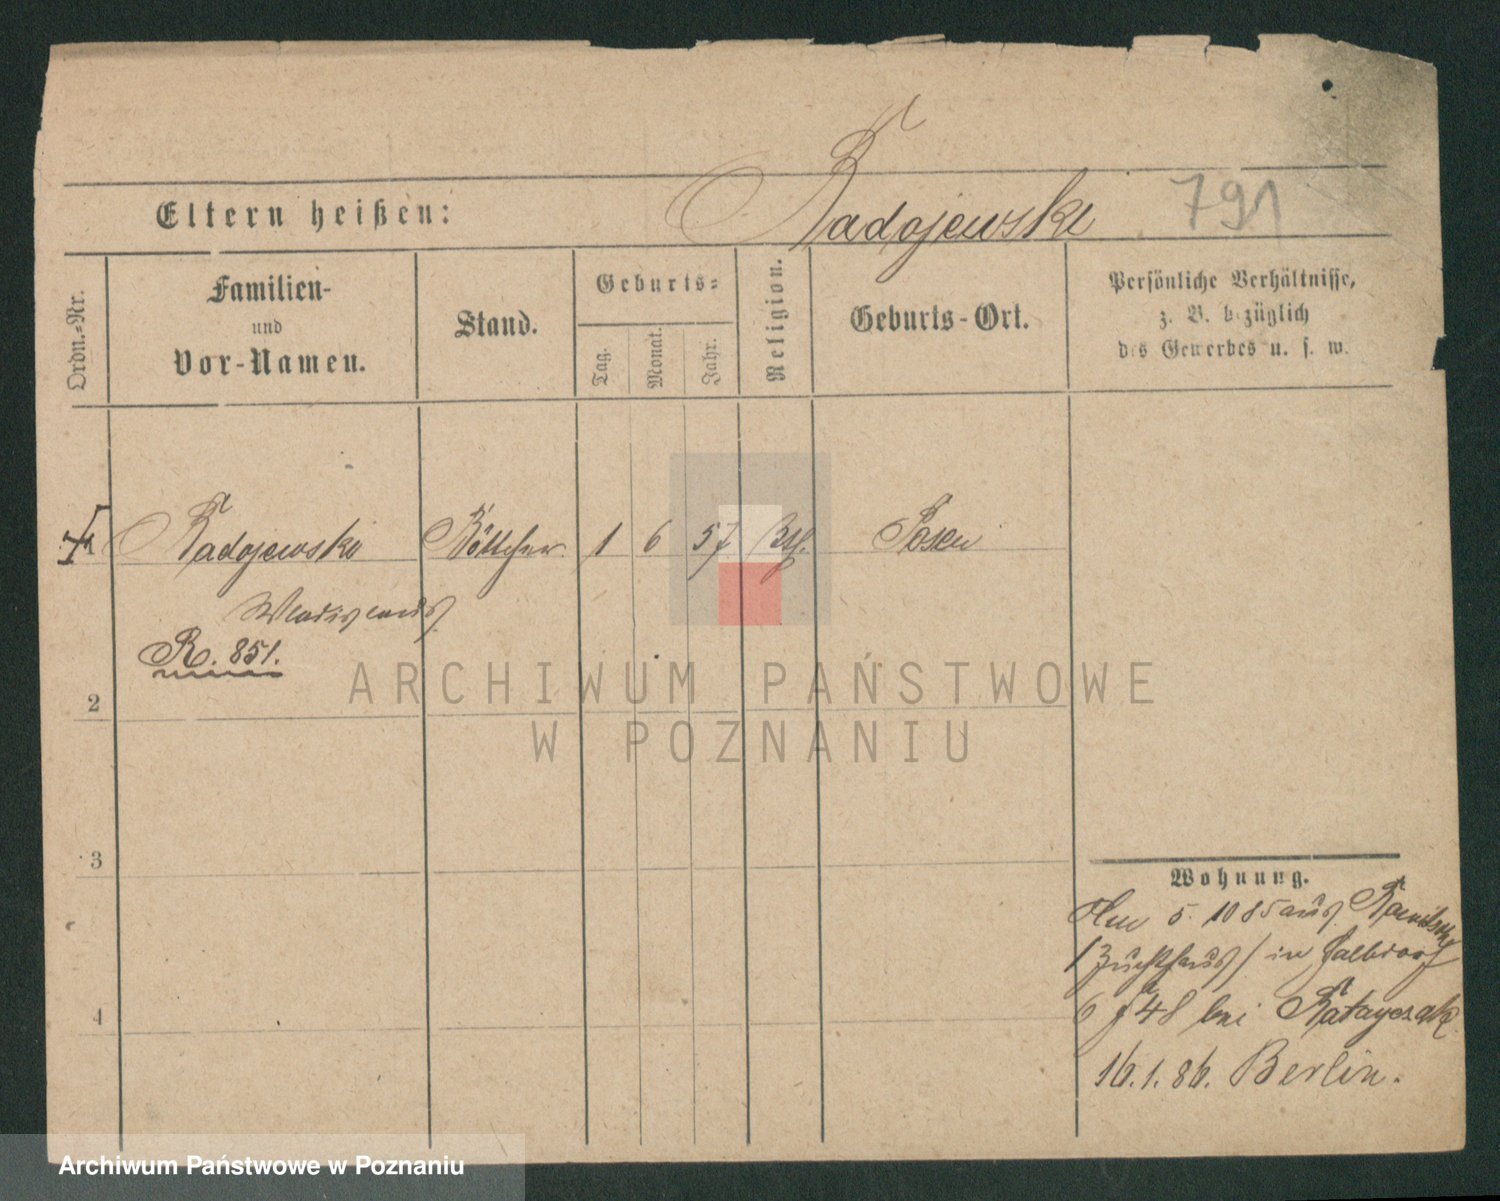 Eltern heißen: Radojewski 791
Ordn.=Nr.
Familien-
und
Vor-Namen.
Stand.
Geburts=
Tag.
Monat.
Jahr.
Religion.
Geburts-Ort.
Persönliche Verhältnisse,
z. B. bezüglich
des Gewerbes u. s. w.
Radojewski Böttcher 1 6 57 Posen
Wladislaus
R. 851.
ARCHIWUM PAŃSTWOWE
W POZNANIU
2
3
4
Wohnung.
5. 10 85 aus
Zuchthaus / in Halbdorf
48 bei Ratayczak
16. 1. 86. Berlin.
Archiwum Państwowe w Poznaniu